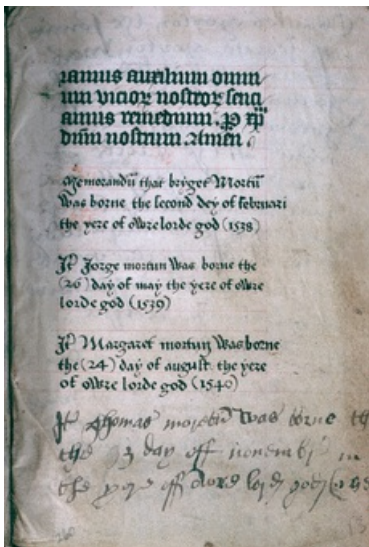 ramus auxilium omni
um vicior nostror senci
amus remedium. P xpm
dnm nostrum. Amen
Memorandū that bryget Mortū
was borne the second dey of februari
the yere of owre lorde god (1538)
It Jorge mortun was borne the
(26) day of may the yere of owre
lorde god (1539)
It Margaret mortun was borne
the (24) day of august the yere
of owre lorde god (1540)
It Thomas mortū was borne th
the 3 day off novembr in
the yere off owre lord god